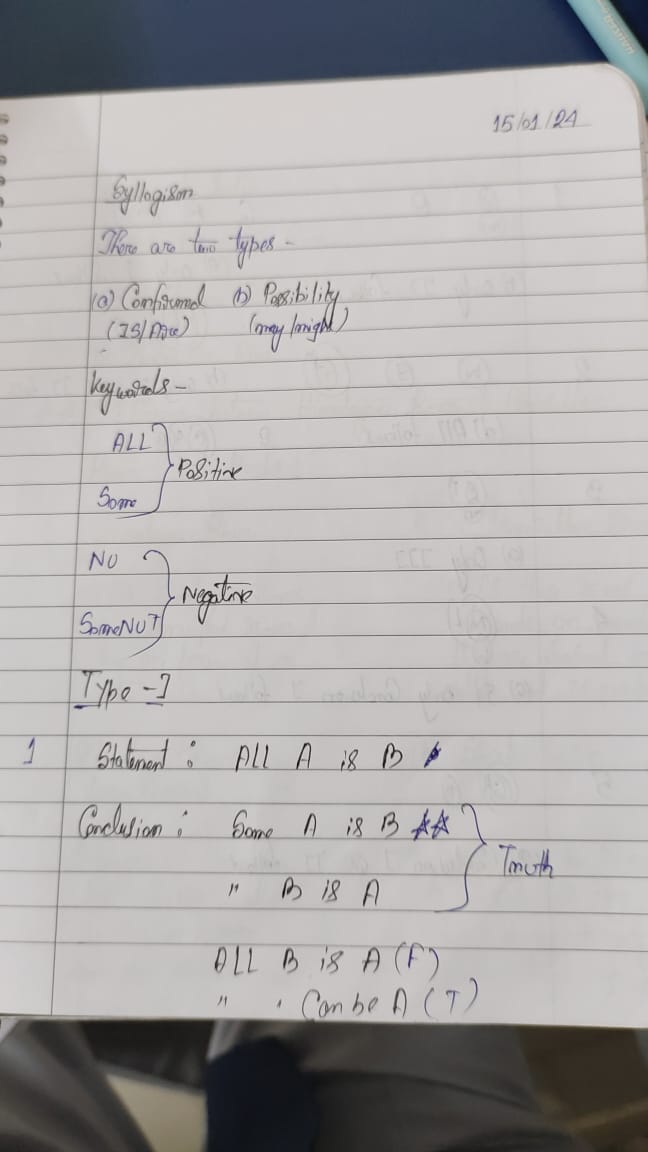 15/01/24
Syllogism
There are two types -
(a) Confirmed (b) Possibility
(IS/Are) (may/might)
Keywords -
ALL
Positive
Some
NO
Negative
SomeNOT
Type - I
1 Statement : ALL A is B
Conclusion : Some A is B ☆☆
Truth
" B is A
ALL B is A (F)
" " Can be A (T)